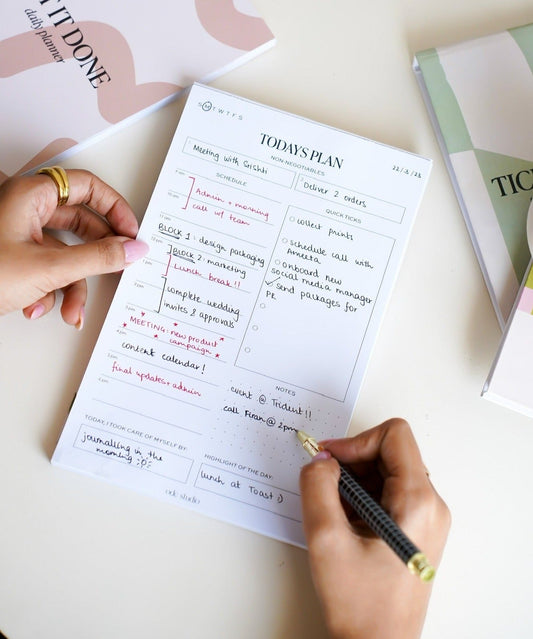 IT DONE
daily planner
S M T W T F S
TODAYS PLAN
22/3/23
NON NEGOTIABLES
Meeting with Srishti
Deliver 2 orders
SCHEDULE
Admin + morning
call w/ team
BLOCK 1: design packaging
BLOCK 2: marketing
Lunch break!!
complete wedding
invites & approvals
MEETING: new product
campaign
content calendar!
final updates + admin
QUICK TICKS
collect prints
schedule call with
Ameeta
onboard new
social media manager
send packages for
PR
NOTES
event @ Trident!!
call Firan @ 2pm
TODAY, I TOOK CARE OF MYSELF BY:
journalling in the
morning
HIGHLIGHT OF THE DAY:
lunch at Toast :)
ode studio
TIC